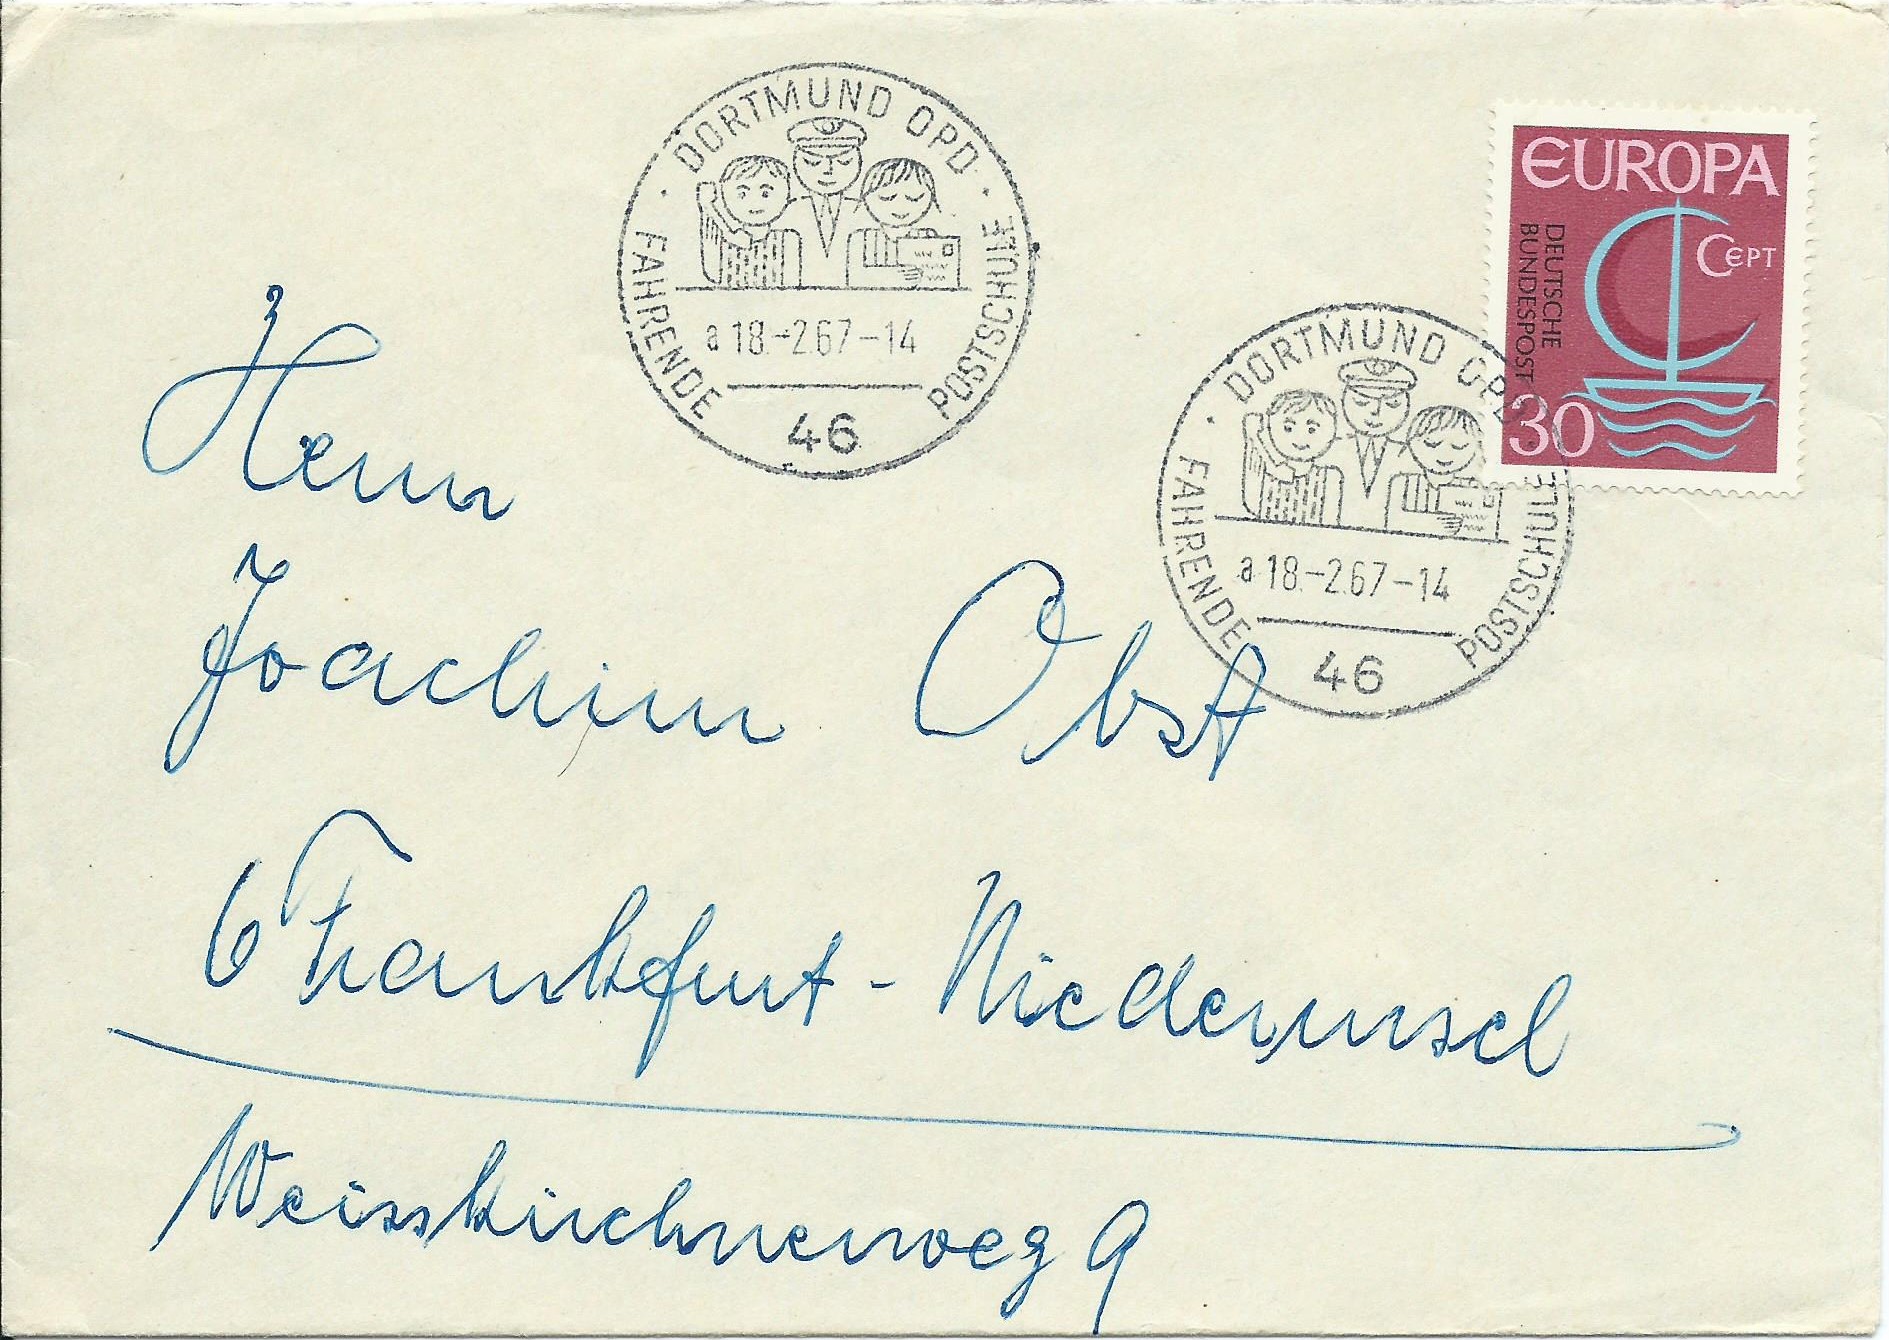 DORTMUND OPD
FAHRENDE POSTSCHULE
a 18.-2.67-14
46
EUROPA
CEPT
DEUTSCHE
BUNDESPOST
30
DORTMUND OPD
FAHRENDE POSTSCHULE
a 18.-2.67-14
46
Herrn
Joachim Obst
6 Frankfurt-Niederursel
Weisskirchnerweg 9